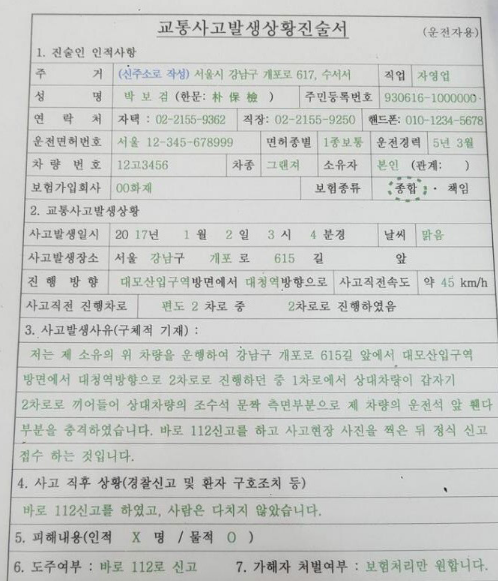 교통사고발생상황진술서 (운전자용)
1. 진술인 인적사항
주 거 (신주소로 작성) 서울시 강남구 개포로 617, 수서서 직업 자영업
성 명 박 보 검 (한문: 朴 保 檢 ) 주민등록번호 930616-1000000
연 락 처 자택 : 02-2155-9362 직장: 02-2155-9250 핸드폰: 010-1234-5678
운전면허번호 서울 12-345-678999 면허종별 1종보통 운전경력 5년 3월
차 량 번 호 12고3456 차종 그랜져 소유자 본인 (관계: )
보험가입회사 00화재 보험종류 종합 · 책임
2. 교통사고발생상황
사고발생일시 20 17년 1 월 2 일 3 시 4 분경 날씨 맑음
사고발생장소 서울 강남구 개포 로 615 길 앞
진 행 방 향 대모산입구역방면에서 대청역방향으로 사고직전속도 약 45 km/h
사고직전 진행차로 편도 2 차로 중 2차로로 진행하였음
3. 사고발생사유(구체적 기재) :
저는 제 소유의 위 차량을 운행하여 강남구 개포로 615길 앞에서 대모산입구역
방면에서 대청역방향으로 2차로로 진행하던 중 1차로에서 상대차량이 갑자기
2차로로 끼어들어 상대차량의 조수석 문짝 측면부분으로 제 차량의 운전석 앞 휀다
부분을 충격하였습니다. 바로 112신고를 하고 사고현장 사진을 찍은 뒤 정식 신고
접수 하는 것입니다.
4. 사고 직후 상황(경찰신고 및 환자 구호조치 등)
바로 112신고를 하였고, 사람은 다치지 않았습니다.
5. 피해내용(인적 X 명 / 물적 O )
6. 도주여부 : 바로 112로 신고 7. 가해자 처벌여부 : 보험처리만 원합니다.